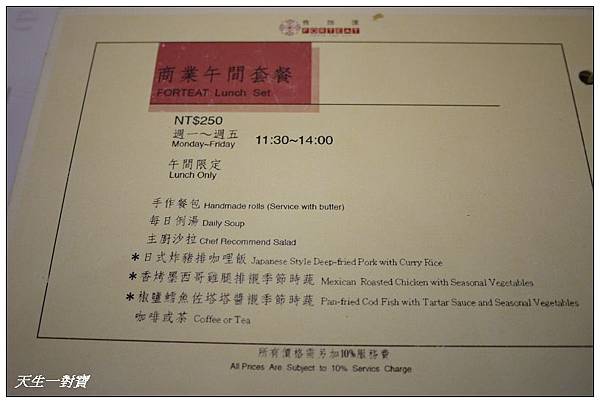 FORTEAT
商業午間套餐
FORTEAT Lunch Set
NT$250
週一～週五
Monday~Friday
11:30~14:00
午間限定
Lunch Only
手作餐包 Handmade rolls (Service with butter)
每日例湯 Daily Soup
主廚沙拉 Chef Recommend Salad
*日式炸豬排咖哩飯 Japanese Style Deep-fried Pork with Curry Rice
*香烤墨西哥雞腿排襯季節時蔬 Mexican Roasted Chicken with Seasonal Vegetables
*椒鹽鱈魚佐塔塔醬襯季節時蔬 Pan-fried Cod Fish with Tartar Sauce and Seasonal Vegetables
咖啡或茶 Coffee or Tea
所有價格需另加10%服務費
All Prices Are Subject to 10% Servics Charge
天生一對寶